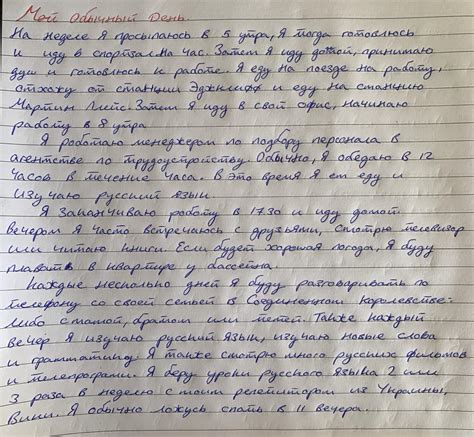 Мой Обычный День
На неделе я просыпаюсь в 5 утра, я тогда готовлюсь
и иду в спортзал на час. Затем я иду домой, принимаю
душ и готовлюсь к работе. Я еду на поезде на работу,
отхажу от станции Эджклифф и еду на станцию
Мартин Плейс. Затем я иду в свой офис, начинаю
работу в 8 утра
Я работаю менеджером по подбору персонала в
агентстве по трудоустройству. Обычно, я обедаю в 12
часов в течение часа. В это время я ем еду и
изучаю русский язык.
Я заканчиваю работу в 17.30 и иду домой.
Вечером я часто встречаюсь с друзьями, смотрю телевизор
или читаю книги. Если будет хорошая погода, я буду
плавать в квартире у бассейна.
Каждые несколько дней я буду разговаривать по
телефону со своей семьей в Соединенном Королевстве:
либо с мамой, братом или тетей. Также каждый
вечер я изучаю русский язык, изучаю новые слова
и грамматику. Я также смотрю много русских фильмов
и телепрограмм. Я беру уроки русского языка 2 или
3 раза в неделю с моим репетитором из Украины,
Вики. Я обычно ложусь спать в 11 вечера.